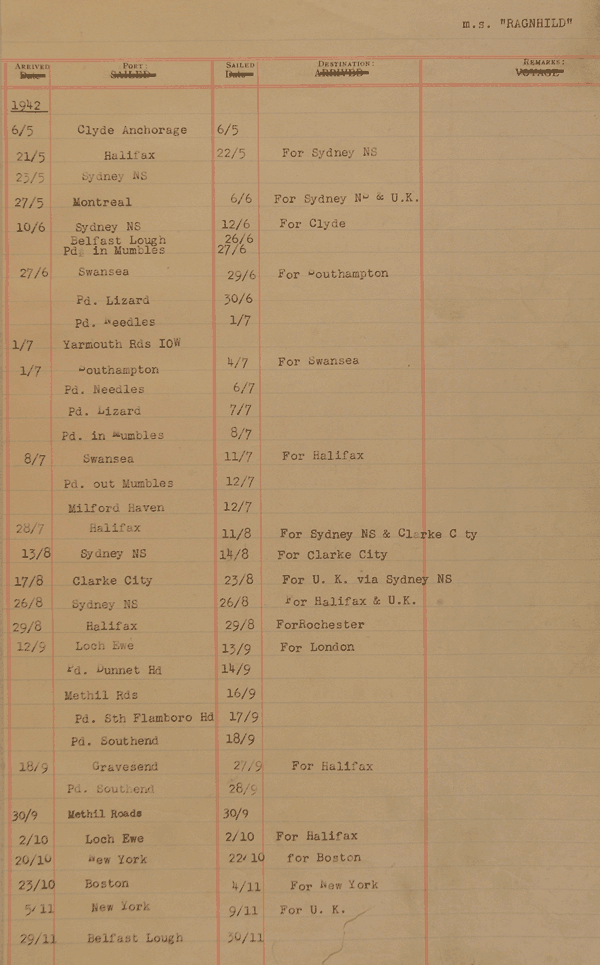 m.s. "RAGNHILD"
ARRIVED Date PORT: SAILED SAILED Date DESTINATION: ARRIVED REMARKS: VOYAGE
1942
6/5 Clyde Anchorage 6/5
21/5 Halifax 22/5 For Sydney NS
23/5 Sydney NS
27/5 Montreal 6/6 For Sydney NS & U.K.
10/6 Sydney NS 12/6 For Clyde
Belfast Lough 26/6
Pd. in Mumbles 27/6
27/6 Swansea 29/6 For Southampton
Pd. Lizard 30/6
Pd. Needles 1/7
1/7 Yarmouth Rds IOW
1/7 Southampton 4/7 For Swansea
Pd. Needles 6/7
Pd. Lizard 7/7
Pd. in Mumbles 8/7
8/7 Swansea 11/7 For Halifax
Pd. out Mumbles 12/7
Milford Haven 12/7
28/7 Halifax 11/8 For Sydney NS & Clarke C ty
13/8 Sydney NS 14/8 For Clarke City
17/8 Clarke City 23/8 For U. K. via Sydney NS
26/8 Sydney NS 26/8 For Halifax & U.K.
29/8 Halifax 29/8 ForRochester
12/9 Loch Ewe 13/9 For London
Pd. Dunnet Hd 14/9
Methil Rds 16/9
Pd. Sth Flamboro Hd 17/9
Pd. Southend 18/9
18/9 Gravesend 27/9 For Halifax
Pd. Southend 28/9
30/9 Methil Roads 30/9
2/10 Loch Ewe 2/10 For Halifax
20/10 New York 22/10 for Boston
23/10 Boston 4/11 For New York
5/11 New York 9/11 For U. K.
29/11 Belfast Lough 30/11